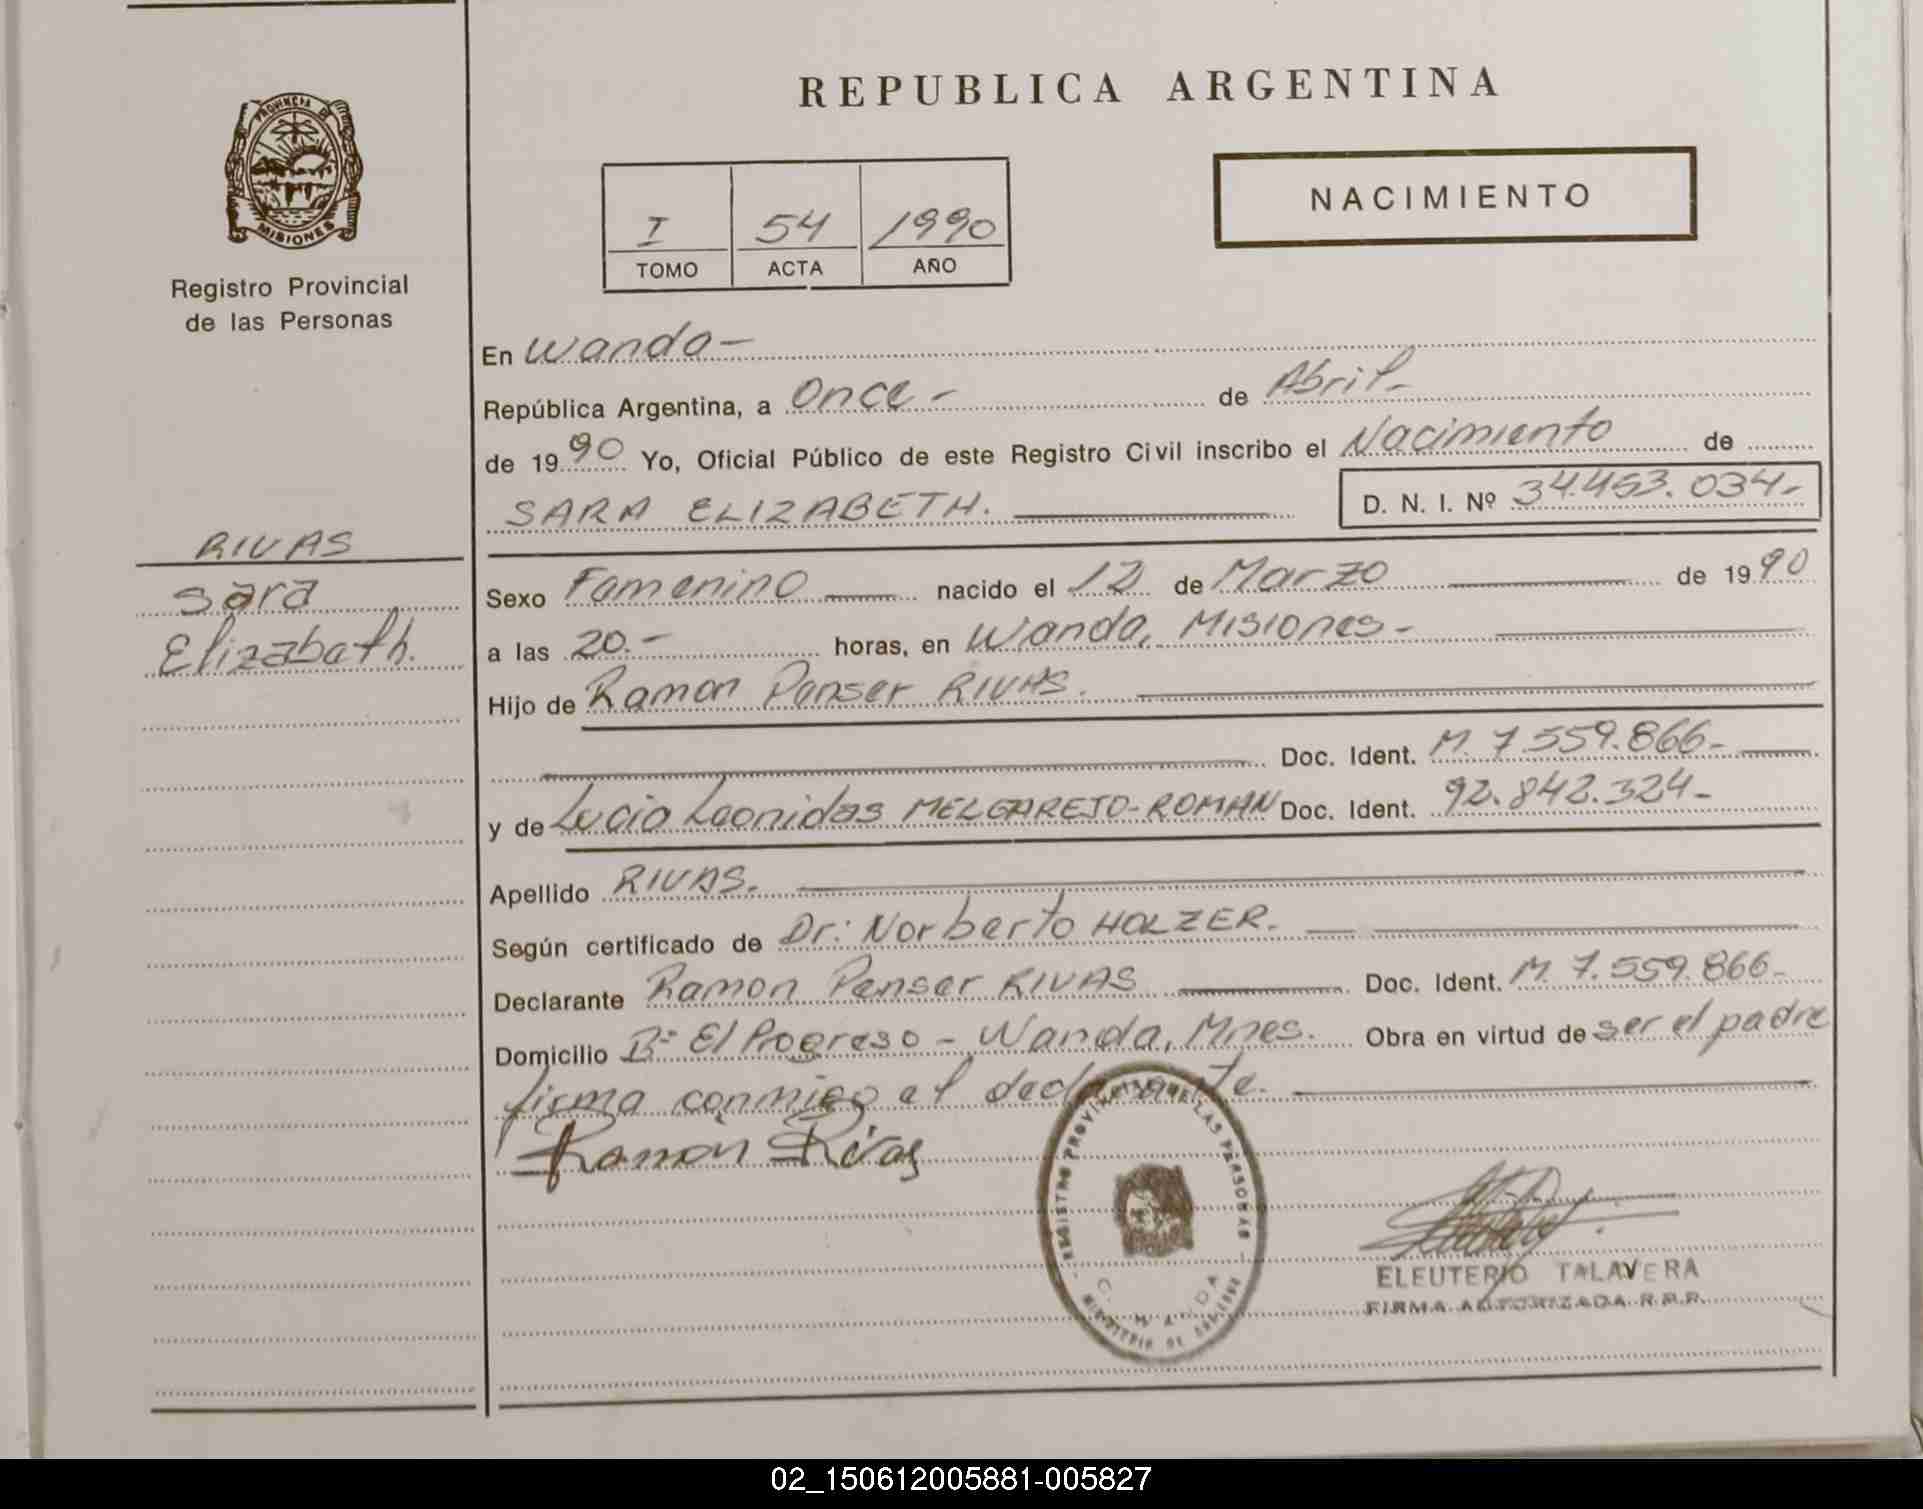 REPUBLICA ARGENTINA
PROVINCIA DE
MISIONES
Registro Provincial
de las Personas
I 54 1990
TOMO ACTA AÑO
NACIMIENTO
En Wanda-
República Argentina, a Once- de Abril-
de 1990 Yo, Oficial Público de este Registro Civil inscribo el Nacimiento de
SARA ELIZABETH. D. N. I. Nº 34.453.034-
RIVAS
Sara
Elizabeth.
Sexo Femenino nacido el 12 de Marzo de 1990
a las 20.- horas, en Wanda, Misiones-
Hijo de Ramón Penser RIVAS.
Doc. Ident. M. 7.559.866-
y de Lucia Leonidas MELGAREJO-ROMAN Doc. Ident. 92.842.324-
Apellido RIVAS.
Según certificado de Dr: Norberto HOLZER.
Declarante Ramon Penser RIVAS Doc. Ident. M. 7.559.866-
Domicilio Bº El Progreso - Wanda, Mnes. Obra en virtud de ser el padre
firma conmigo el declarante.
Ramón Rivas
REGISTRO PROVINCIAL DE LAS PERSONAS
WANDA
MINISTERIO DE
ELEUTERIO TALAVERA
FIRMA AUTORIZADA R.P.P.
02_150612005881-005827